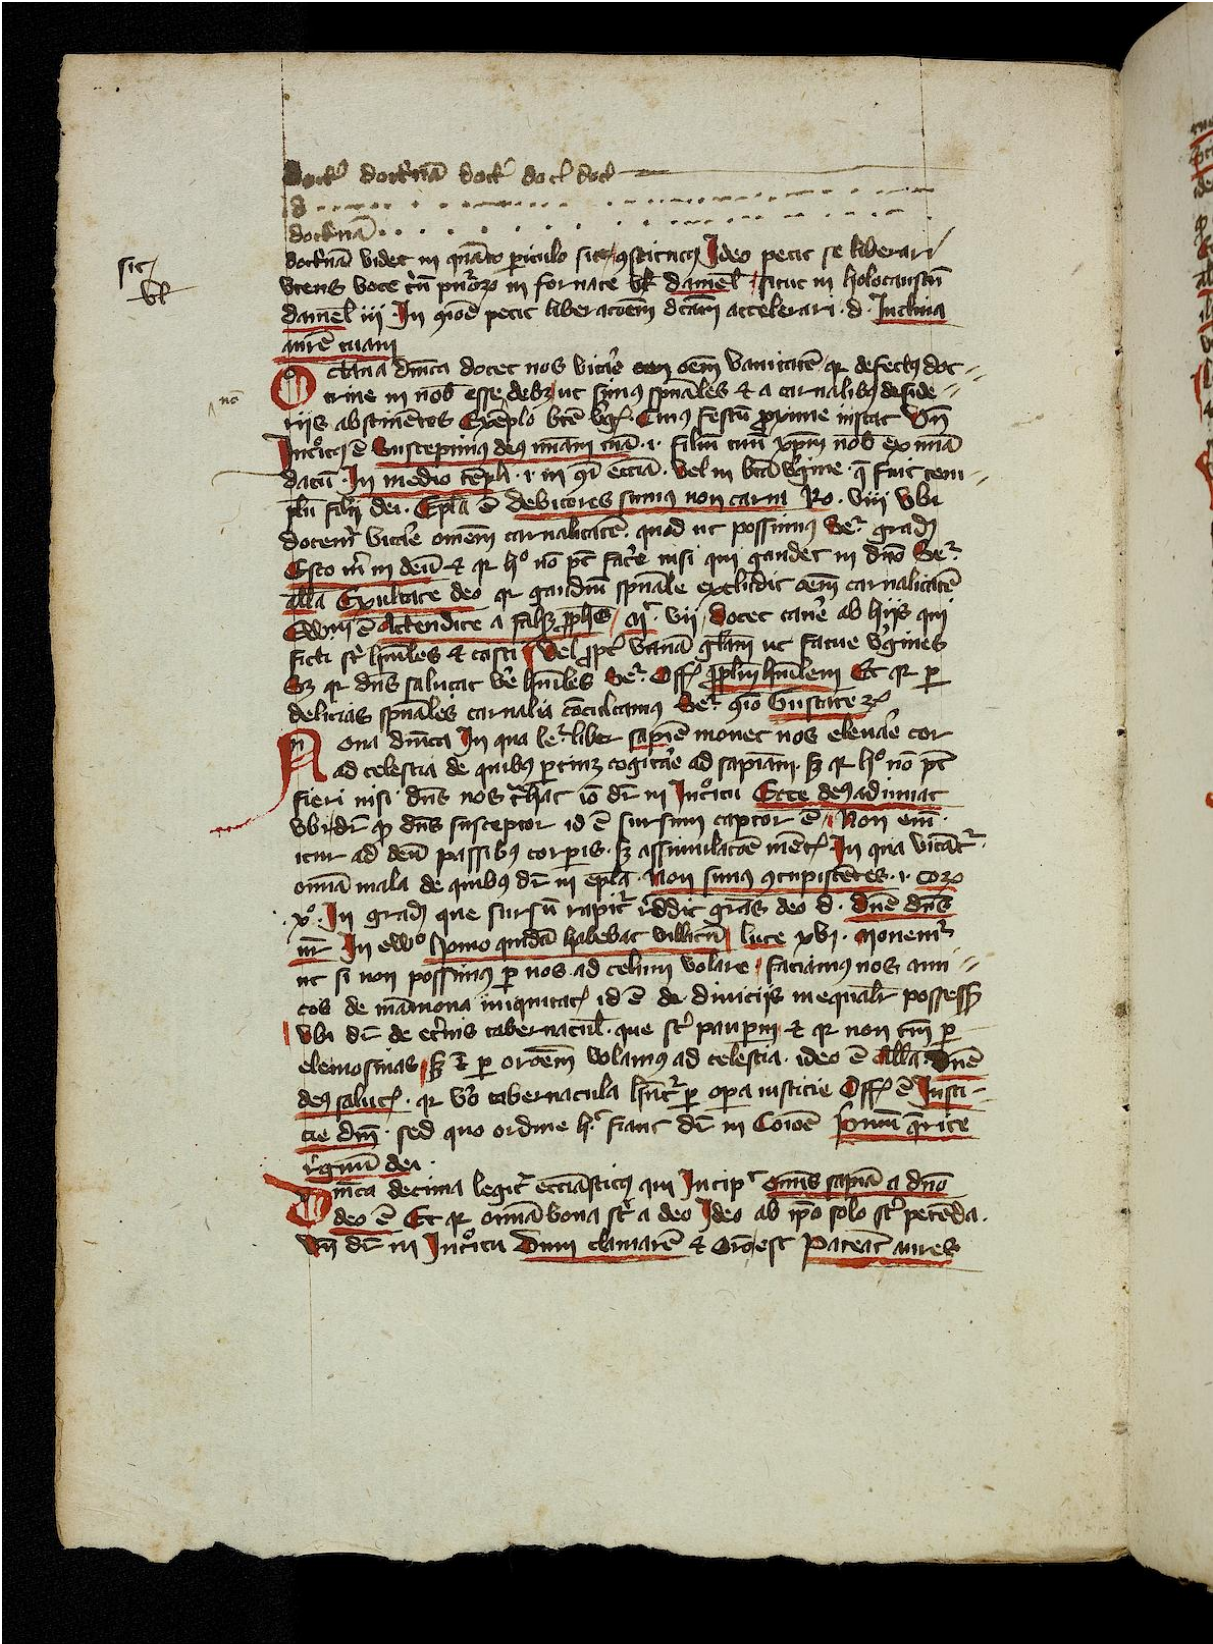 doctͥ doctͥnā doctͥ doct doct
d
doctͥnā
doctͥnā videt in quāto periculo sit ꝯstitutꝰ Ideo petit se liberari
sic
utens voce triū pueroꝝ in fornace vel daniel / sicut in holocaustū
vel
daniel iij · In quod petit liberacōem dcām accelerari · d · Inclina
aurē tuam
Octava dnīca docet nos vitare oēm vanitatē qꝛ defectꝰ doc
nō
trine in nob esse debꝫ ut simꝰ spūales ⁊ a carnalibꝰ deside
riis abstinētes Exēplo btē vgis · Cuius festū proxime instat Vn̄
Introitꝰ ē Suscepimꝰ deꝰ miām tuā · i · filiū tuū xp̄m nob ex miā
datū · In medio tēpli · i · in ecciā · Vel in btā vgine · q̄ fuit tem
plū filij dei · Epla ē debitores sumus non carni Ro · viij Vbi
docemr vitare omēm carnalitatē · quod ut possimꝰ Seꝛ gradꝭ
Esto m̄ in deū ⁊ qꝛ hͦ nō pt̄ facͤe nisi qui gaudet in dn̄o Seꝛ
allā Exultate deo qꝛ gaudiū spūale excludit oēm carnalitatē
Ewm̄ ē Attendite a falsꝭ ꝓphetis / mͭ · vij / docet cavͤe ab hijs qui
ficti st̄ humiles ⁊ casti / Vel ꝓpt vanā gl̄am ut fatue vgines
Sꝫ qꝛ dn̄s salvat vͤe humiles Seꝛ Off ꝓplm̄ humilem Et qꝛ ꝑ
delicias spūales carnalia cōculcamꝰ Seꝛ ꝯio Gustate ⁊c
Nona dnīca In qua leꝛ liber sapiē monet nos elevaͤe cor
ad celestia de quibꝰ ꝑtinꝫ cogitaͤe ad sapiām · sꝫ qꝛ hͦ nō pt̄
fieri nisi dn̄s nos tͣhat iō dr̄ in Introitu Ecce deꝰ adiuvat
vbi dr̄ ꝙ dn̄s susceptor id ē sursum captor ē / Non em̄
itur ad deū passibꝰ corꝑis · sꝫ assimulacōe mētꝭ · In qua vitātͬ
omīa mala de quibꝰ dr̄ in epla · Non simꝰ ꝯcupiscētes · i · Coꝝ
xͦ · In gradꝭ que sursū rapitͬ rͤddit grās deo d · Dn̄e dn̄s
nr̄ In ewͦ homo quidā habebat villicū / luce xvj · monemͬ
ut si non possimꝰ ꝑ nos ad celum volare / faciamꝰ nos ami
cos de māmona iniquitatꝭ id ē de divicijs inequalr possessꝭ
Vbi dr̄ de etͤnis tabernacul · que st̄ pauꝑum ⁊ qꝛ non tm̄ ꝑ
elemosinas / sꝫ ⁊ ꝑ orōem volamꝰ ad celestia · ideo ē Allā · Dn̄e
deꝰ salutꝭ · qꝛ vͦ tabernacula hn̄tͬ ꝑ opa iusticie Off ē Iusti
cie dnī · sed quo ordine hͨ fiant dr̄ in Coīoē Pͥmū q̄rite
rͤgnū dei ·
Dnīca decima legitͬ ecclīasticꝰ qui Incipͭ Omīs sapīa a dn̄o
deo ē Et qꝛ omīa bona st̄ a deo Ideo ab ip̄o solo st̄ petēda ·
Vn̄ dr̄ in Introitu Dum clamarē ⁊ Orō est Pateāt aures